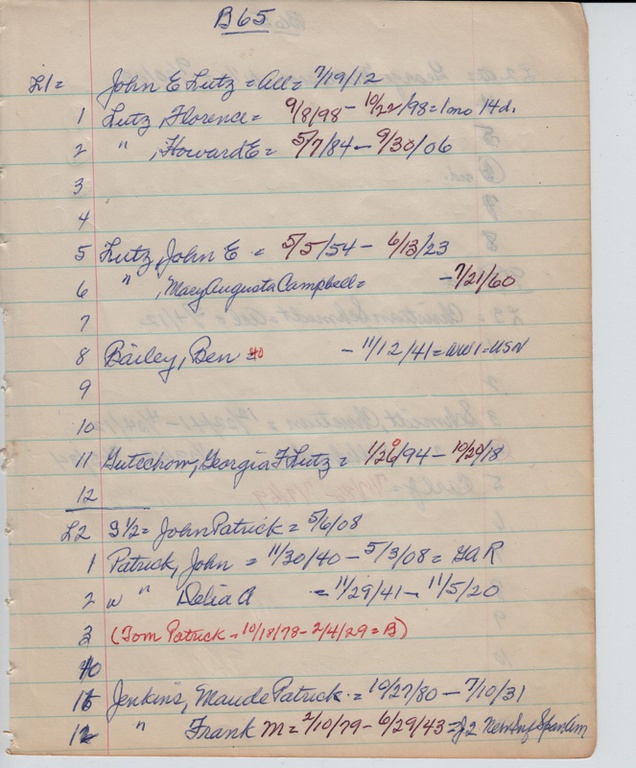 B65
L1 = John E Lutz = All = 7/19/12
1 Lutz, Florence = 9/8/98 - 10/22/98 = 1mo 14d.
2 " , Howard E = 5/7/84 - 9/30/06
3
4
5 Lutz, John E = 5/5/54 - 6/13/23
6 " , Mary Augusta Campbell = - 7/21/60
7
8 Bailey, Ben = 40 - 11/12/41 = WW1 = USN
9
10
11 Gutschow, Georgia F Lutz = /94 - 10/20/18
12
L2 S 1/2 = John Patrick = 5/6/08
1 Patrick, John = 11/30/40 - 5/3/08 = GAR
2 w " Delia A = 11/29/41 - 11/5/20
3 (Tom Patrick - 10/18/78 - 2/4/29 = B)
10
11 Jenkins, Maude Patrick = 10/27/80 - 7/10/31
12 " Frank M = 2/10/79 - 6/29/43 = Span Am